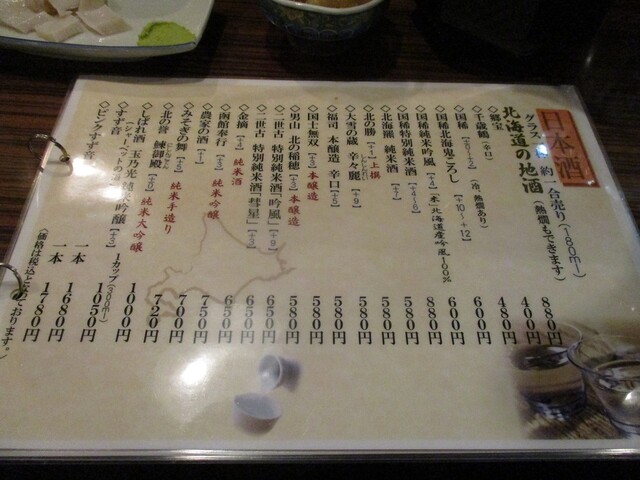 日本酒
グラス 約一合売り(180ml)
北海道の地酒(熱燗もできます)
◇郷宝 880円
◇千歳鶴(辛口) 400円
480円
◇国稀 (冷、熱燗あり) 600円
◇国稀北海鬼ころし [+10~+12] 600円
◇国稀純米吟風 [+4](米)北海道産吟風100% 880円
◇国稀特別純米酒 [+4~6] 580円
◇北海熊 純米酒 580円
◇北の勝 上撰 580円
◇大雪の蔵 辛々麗 580円
◇福司 本醸造 辛口[+5] 580円
◇国士無双 [+3]本醸造 580円
◇男山 北の稲穂[+3]本醸造 580円
◇二世古 特別純米酒「吟風」[+9] 650円
◇二世古 特別純米酒「彗星」 650円
◇金滴 [+4]純米酒 650円
◇函館奉行 純米吟醸 650円
◇農家の酒 750円
◇みそぎの舞 純米手造り 700円
◇北の誉 鰊御殿 純米大吟醸 720円
◇しばれ酒 玉乃光純米吟醸 1カップ(300ml) 1000円
(シャーベットのお酒)
1050円
◇すず音 一本 1680円
◇ピンクすず音 一本 1780円
(価格は税込となっております。)